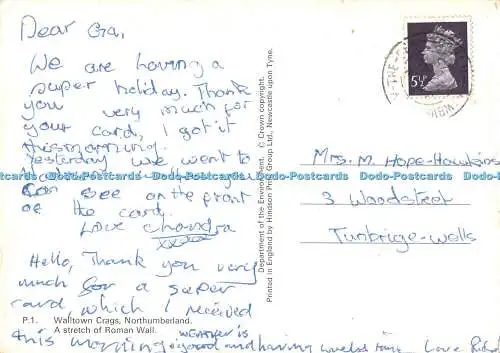 Dear Gra,
We are having a
super holiday. Thank
you very much for
your card, I got it
this morning.
Yesterday we went to
you
can see on the front
of the card.
Love Chandra
xxxxx
Hello, Thank you very
much for a super
card, which I received
this morning WEATHER is
good and having time Love
P.1. Walltown Crags, Northumberland.
A stretch of Roman Wall.
Department of the Environment. © Crown copyright.
Printed in England by Hindson Print Group Ltd., Newcastle upon Tyne.
5½P
Mrs. M. Hope-Hawkins
3 Woodstreet
Tunbrige-wells
Dodo-Postcards Dodo-Postcards Dodo-Postcards Dodo-Postcards Dodo-Postcards Dodo-Postcards